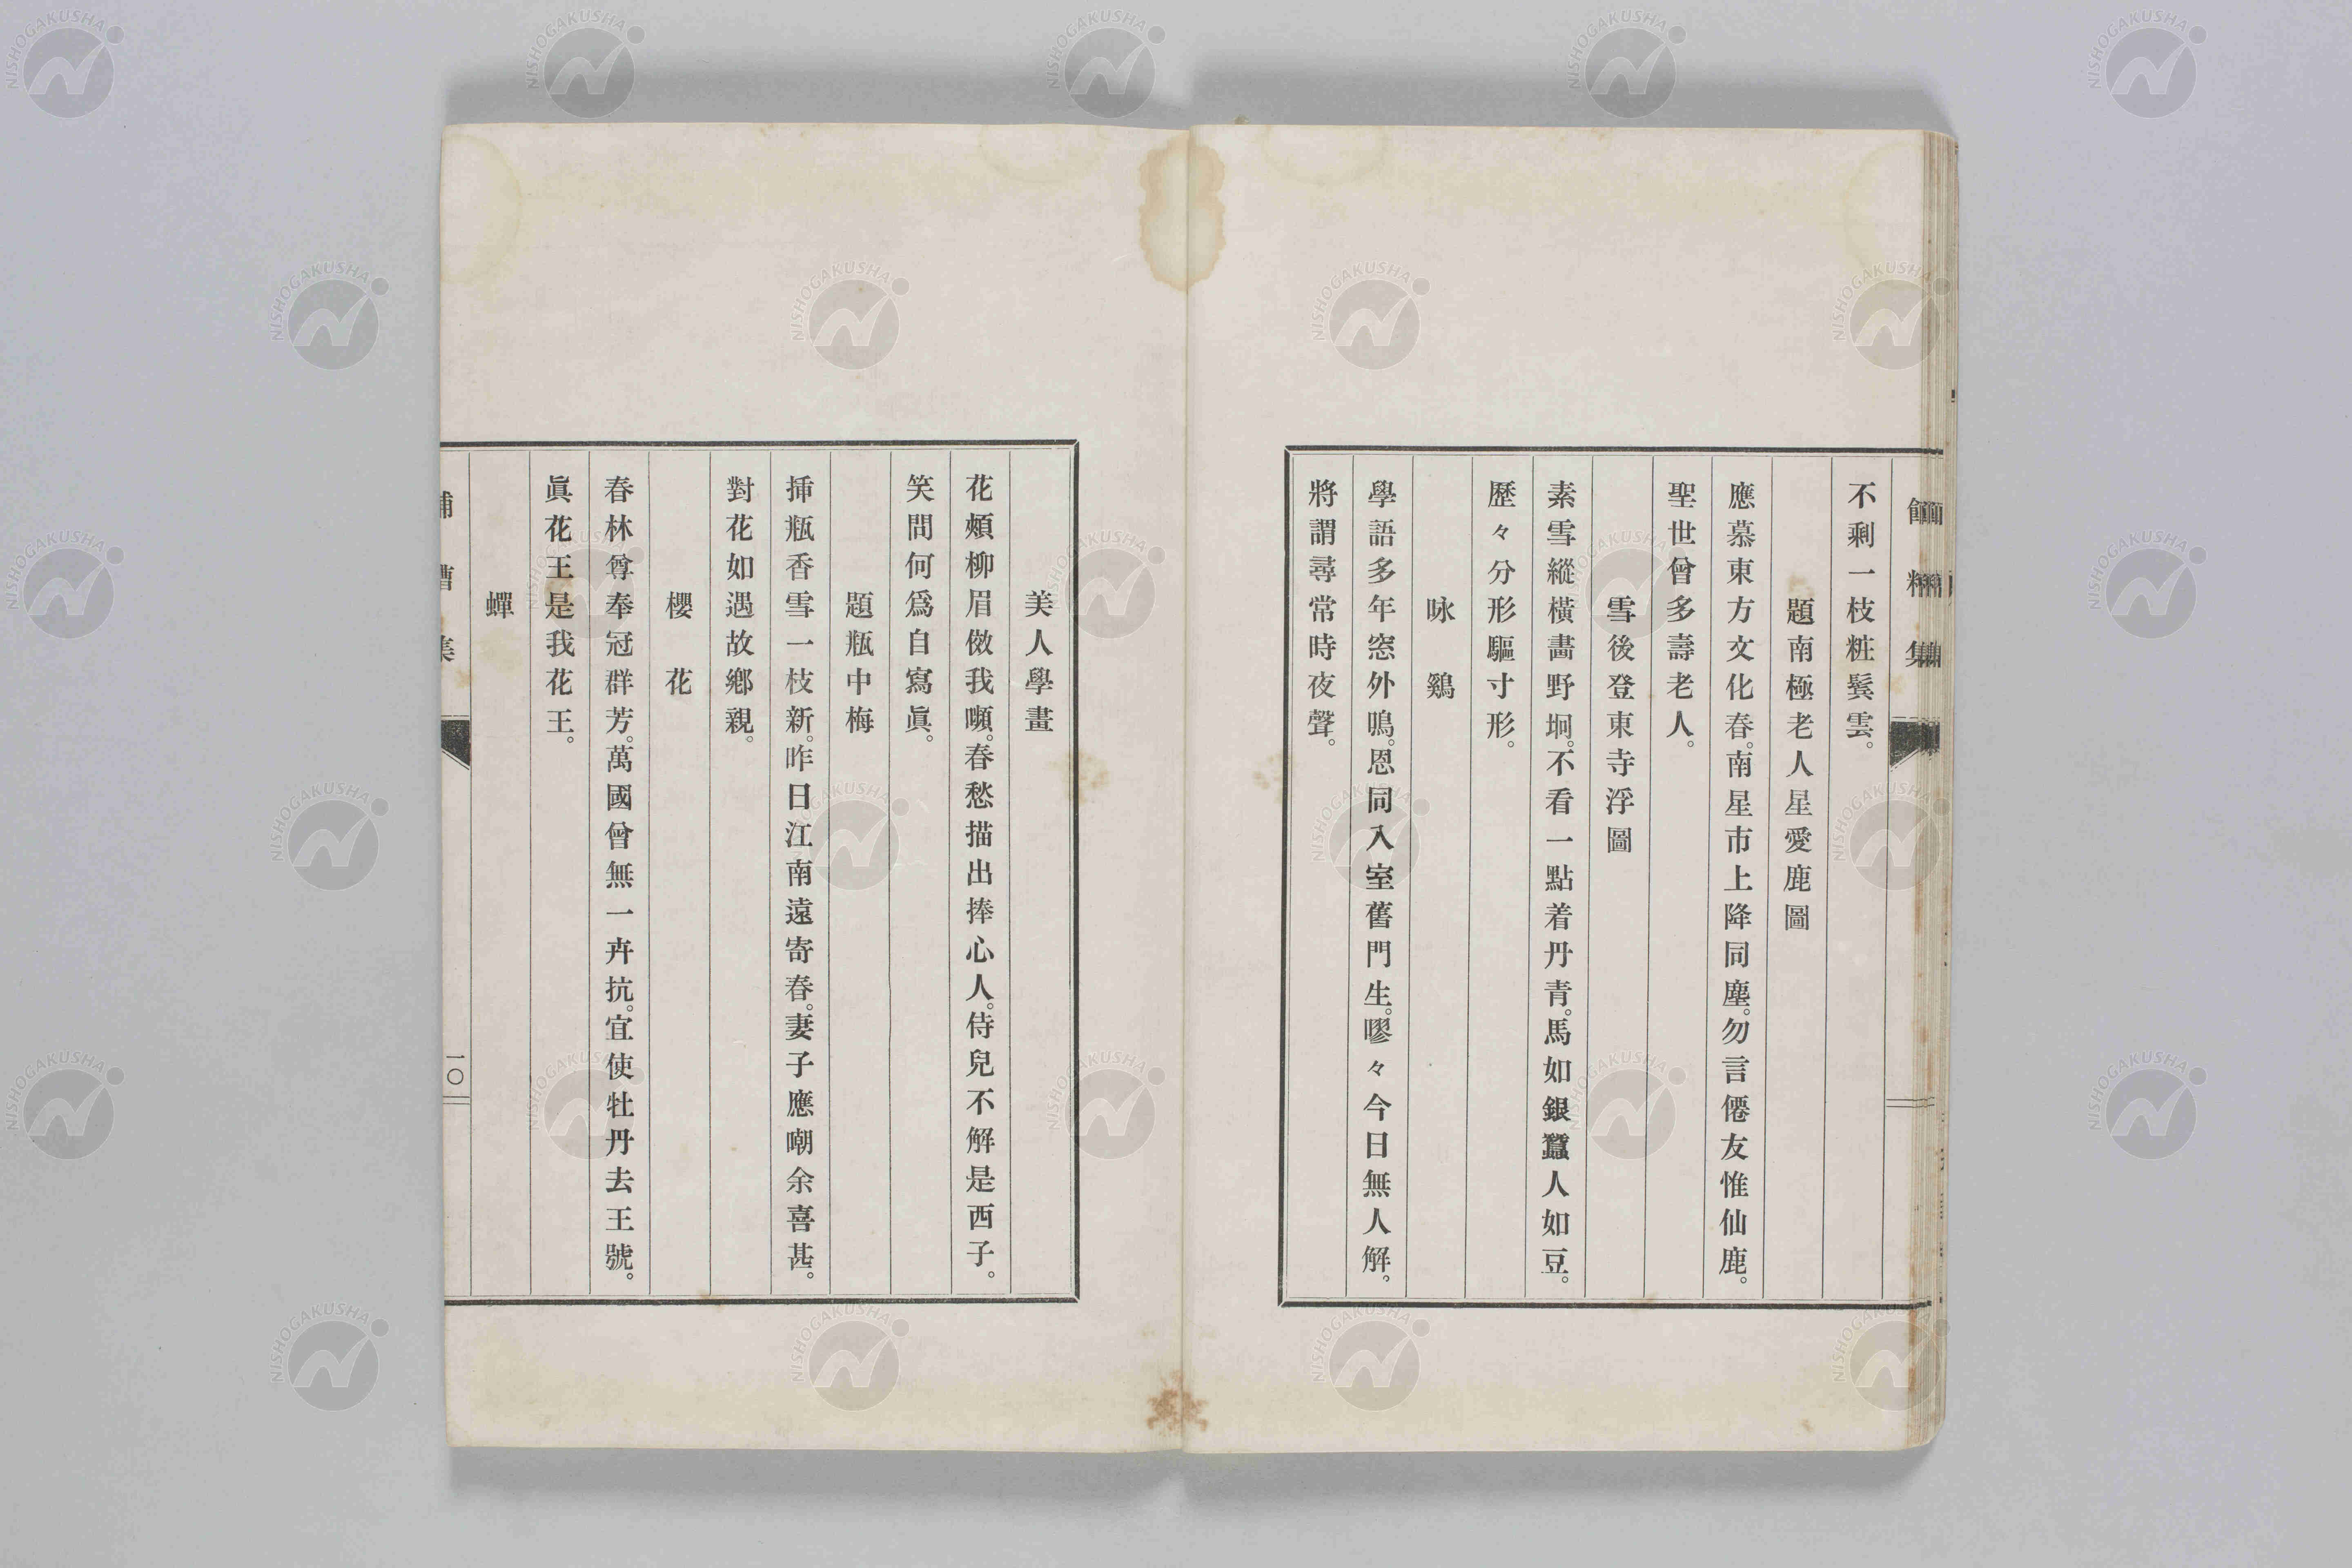 不剩一枝粧鬂雲。
題南極老人星愛鹿圖
應慕東方文化春。南星市上降同塵。勿言僊友惟仙鹿。
聖世曾多壽老人。
雪後登東寺浮圖
素雪縱橫畵野坰。不看一點着丹青。馬如銀蠶人如豆。
歷々分形驅寸形。
咏鷄
學語多年窓外鳴。恩同入室舊門生。嘐々今日無人解。
將謂尋常時夜聲。
美人學畫
花頰柳眉傚我嚬。春愁描出捧心人。侍兒不解是西子。
笑問何爲自寫眞。
題瓶中梅
挿瓶香雪一枝新。昨日江南遠寄春。妻子應嘲余喜甚。
對花如遇故鄉親。
櫻花
春林尊奉冠群芳。萬國曾無一卉抗。宜使牡丹去王號。
眞花王是我花王。
蟬
一〇
NISHOGAKUSHA